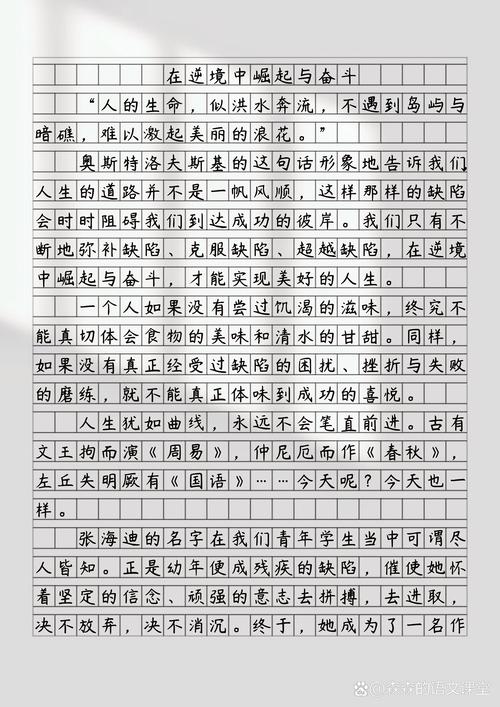 在逆境中崛起与奋斗
“人的生命，似洪水奔流，不遇到岛屿与
暗礁，难以激起美丽的浪花。”
奥斯特洛夫斯基的这句话形象地告诉我们
人生的道路并不是一帆风顺，这样那样的缺陷
会时时阻碍我们到达成功的彼岸。我们只有不
断地弥补缺陷、克服缺陷、超越缺陷，在逆境
中崛起与奋斗，才能实现美好的人生。
一个人如果没有尝过饥渴的滋味，终究不
能真切体会食物的美味和清水的甘甜。同样，
如果没有真正经受过缺陷的困扰、挫折与失败
的磨练，就不能真正体味到成功的喜悦。
人生犹如曲线，永远不会笔直前进。古有
文王拘而演《周易》，仲尼厄而作《春秋》，
左丘失明厥有《国语》……今天呢？今天也一
样。
张海迪的名字在我们青年学生当中可谓尽
人皆知。正是幼年便成残疾的缺陷，催使她怀
着坚定的信念、顽强的意志去拼搏，去进取，
决不放弃，决不消沉。终于，她成为了一名作
森森的语文课堂